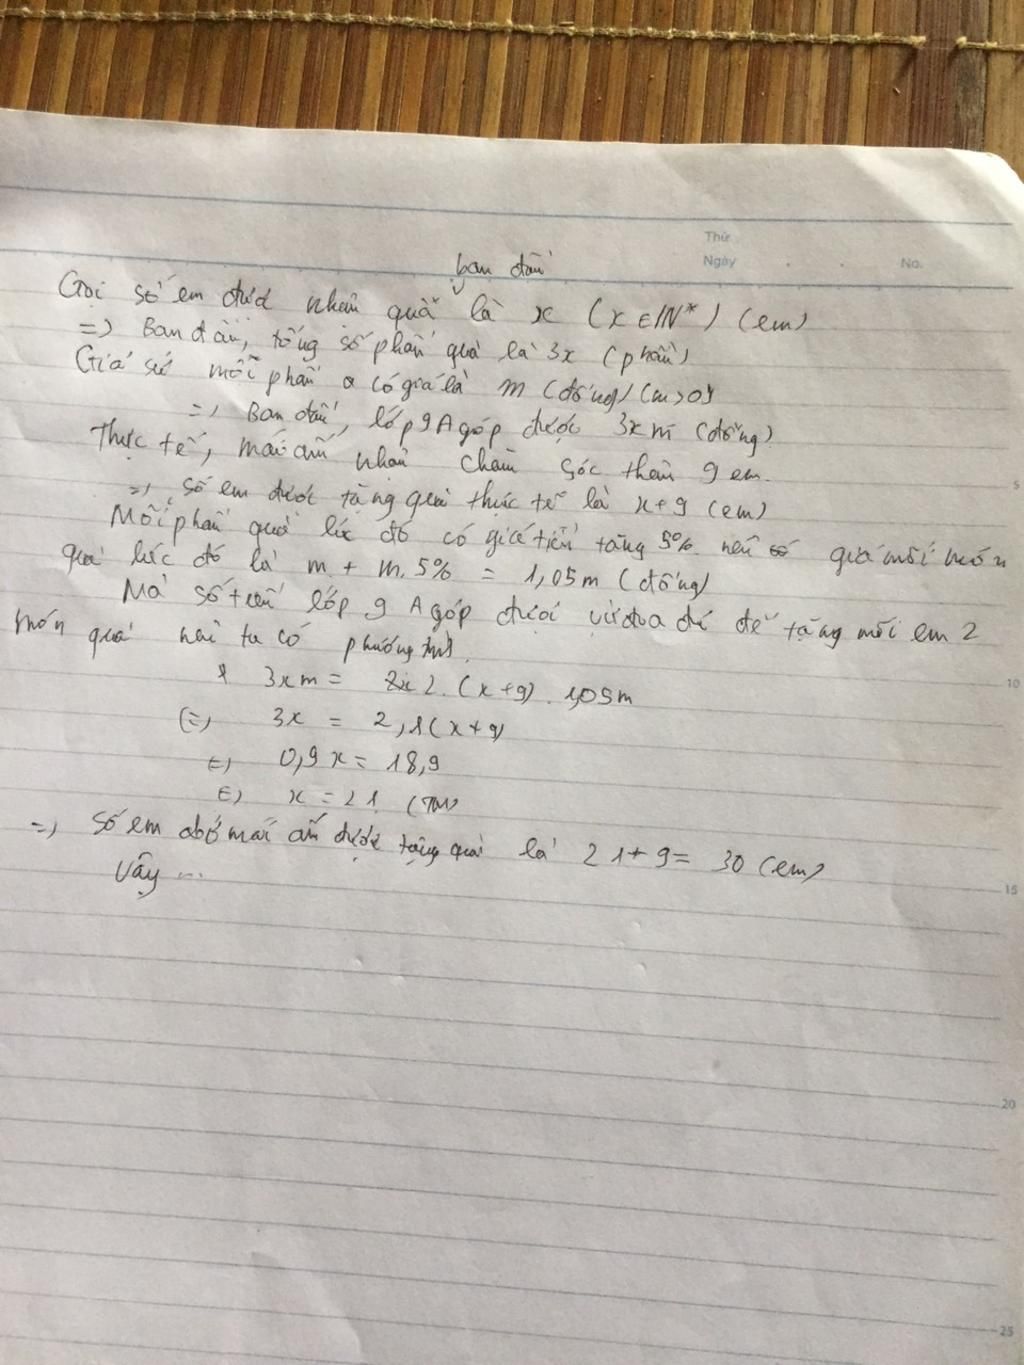 Thứ
Ngày No.
ban đầu
Gọi số em được nhận quà là x (x ∈ IN*) (em)
=) Ban đầu, tổng số phần quà là 3x (phần)
Giả sử mỗi phần có giá là m (đồng) (m>0)
=) Ban đầu, lớp 9A góp được 3xm (đồng)
Thực tế, mái ấm nhận chăm sóc thêm 9 em.
=) số em được tặng quà thực tế là x+9 (em)
Mỗi phần quà lúc đó có giá tiền tăng 5% nên giá mỗi món
5
quà lúc đó là m + m.5% = 1,05m (đồng)
Mà số tiền lớp 9A góp được vừa đủ để tặng mỗi em 2
món quà nên ta có phương trình
3xm = 2.(x+9).1,05m
10
(=) 3x = 2,1(x+9)
(=) 0,9x = 18,9
(=) x = 21 (TM)
=) Số em ở mái ấm được tặng quà là 21+9 = 30 (em)
Vậy ...
15
20
25